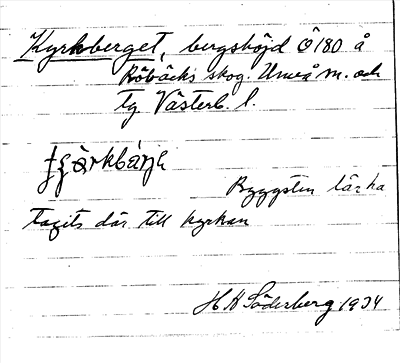 Kyrkberget, bergshöjd Ö 180 å
Röbäcks skog. Umeå sn. och
tg Västerb. l.
Byggsten lär ha
tagits där till kyrkan
H H Söderberg 1934